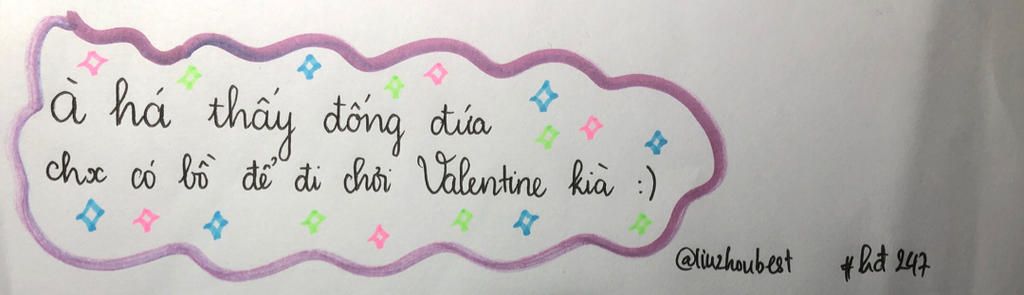 À há thấy đống đứa
chx có bồ để đi chơi Valentine kià :)
@liuzhoubest #hđ 247